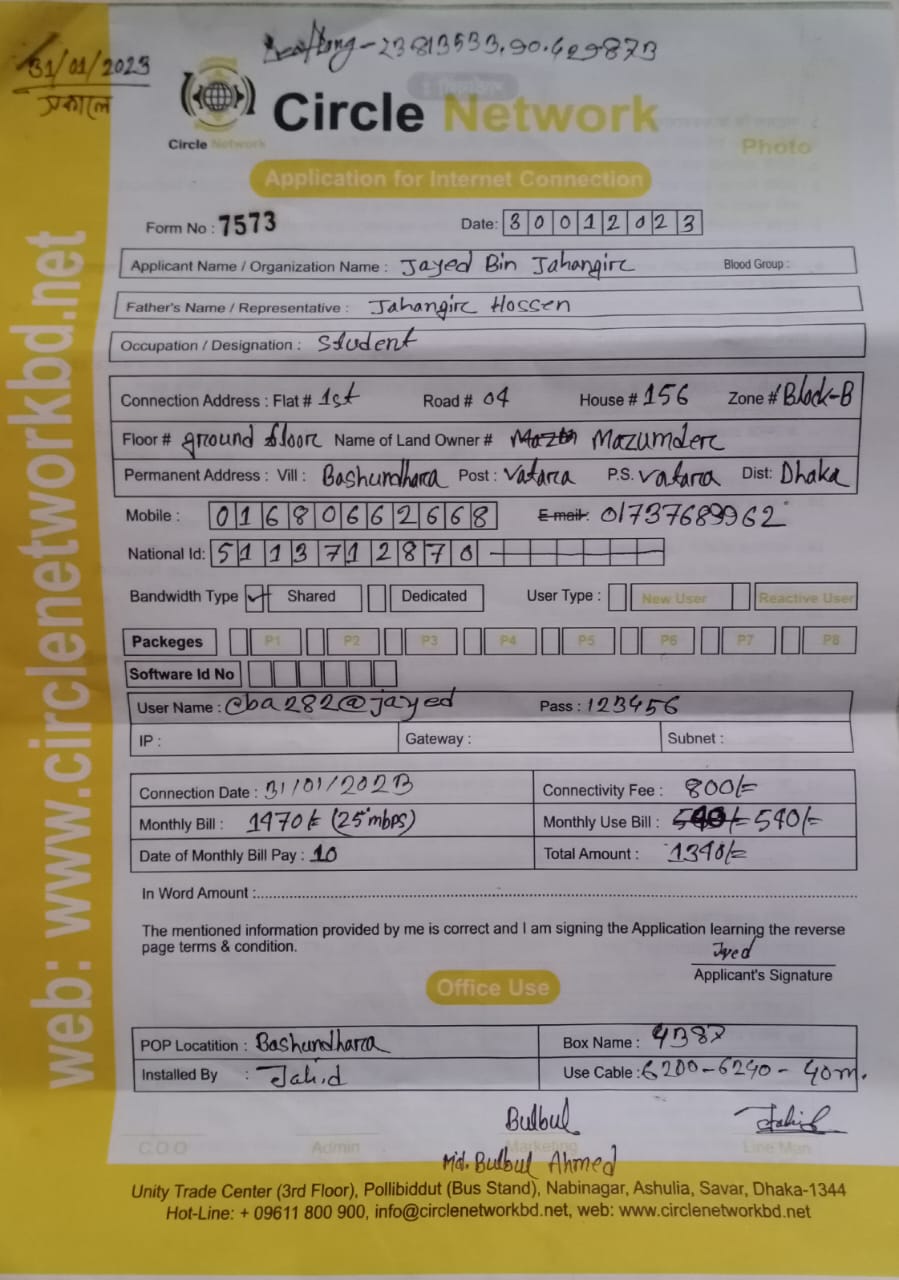 23813533,90.429873
31/01/2023
সকালে
Circle Network
Circle Network
Photo
Application for Internet Connection
Form No : 7573 Date: 30012023
Applicant Name / Organization Name : Jayed Bin Jahangir Blood Group :
Father's Name / Representative : Jahangir Hossen
Occupation / Designation : Student
Connection Address : Flat # 1st Road # 04 House # 156 Zone # Block-B
Floor # ground floor Name of Land Owner # Mazumder
Permanent Address : Vill : Bashundhara Post : Vatara P.S. Vatara Dist: Dhaka
Mobile : 01680662668 E-mail: 01737689962
National Id: 5113712870
Bandwidth Type Shared Dedicated User Type : New User Reactive User
Packeges P1 P2 P3 P4 P5 P6 P7 P8
Software Id No
User Name : cba282@jayed Pass : 123456
IP : Gateway : Subnet :
Connection Date : 31/01/2023 Connectivity Fee : 800/=
Monthly Bill : 1970/= (25 mbps) Monthly Use Bill : 540/=
Date of Monthly Bill Pay : 10 Total Amount : 1340/=
In Word Amount :
The mentioned information provided by me is correct and I am signing the Application learning the reverse
page terms & condition.
Applicant's Signature
Office Use
POP Locatition : Bashundhara Box Name :
Installed By : Jahid Use Cable : 6200-6240 - 40m.
Bulbul Jahid
C.O.O Admin Marketing Line Man
Md. Bulbul Ahmed
Unity Trade Center (3rd Floor), Pollibiddut (Bus Stand), Nabinagar, Ashulia, Savar, Dhaka-1344
Hot-Line: + 09611 800 900, info@circlenetworkbd.net, web: www.circlenetworkbd.net
web: www.circlenetworkbd.net